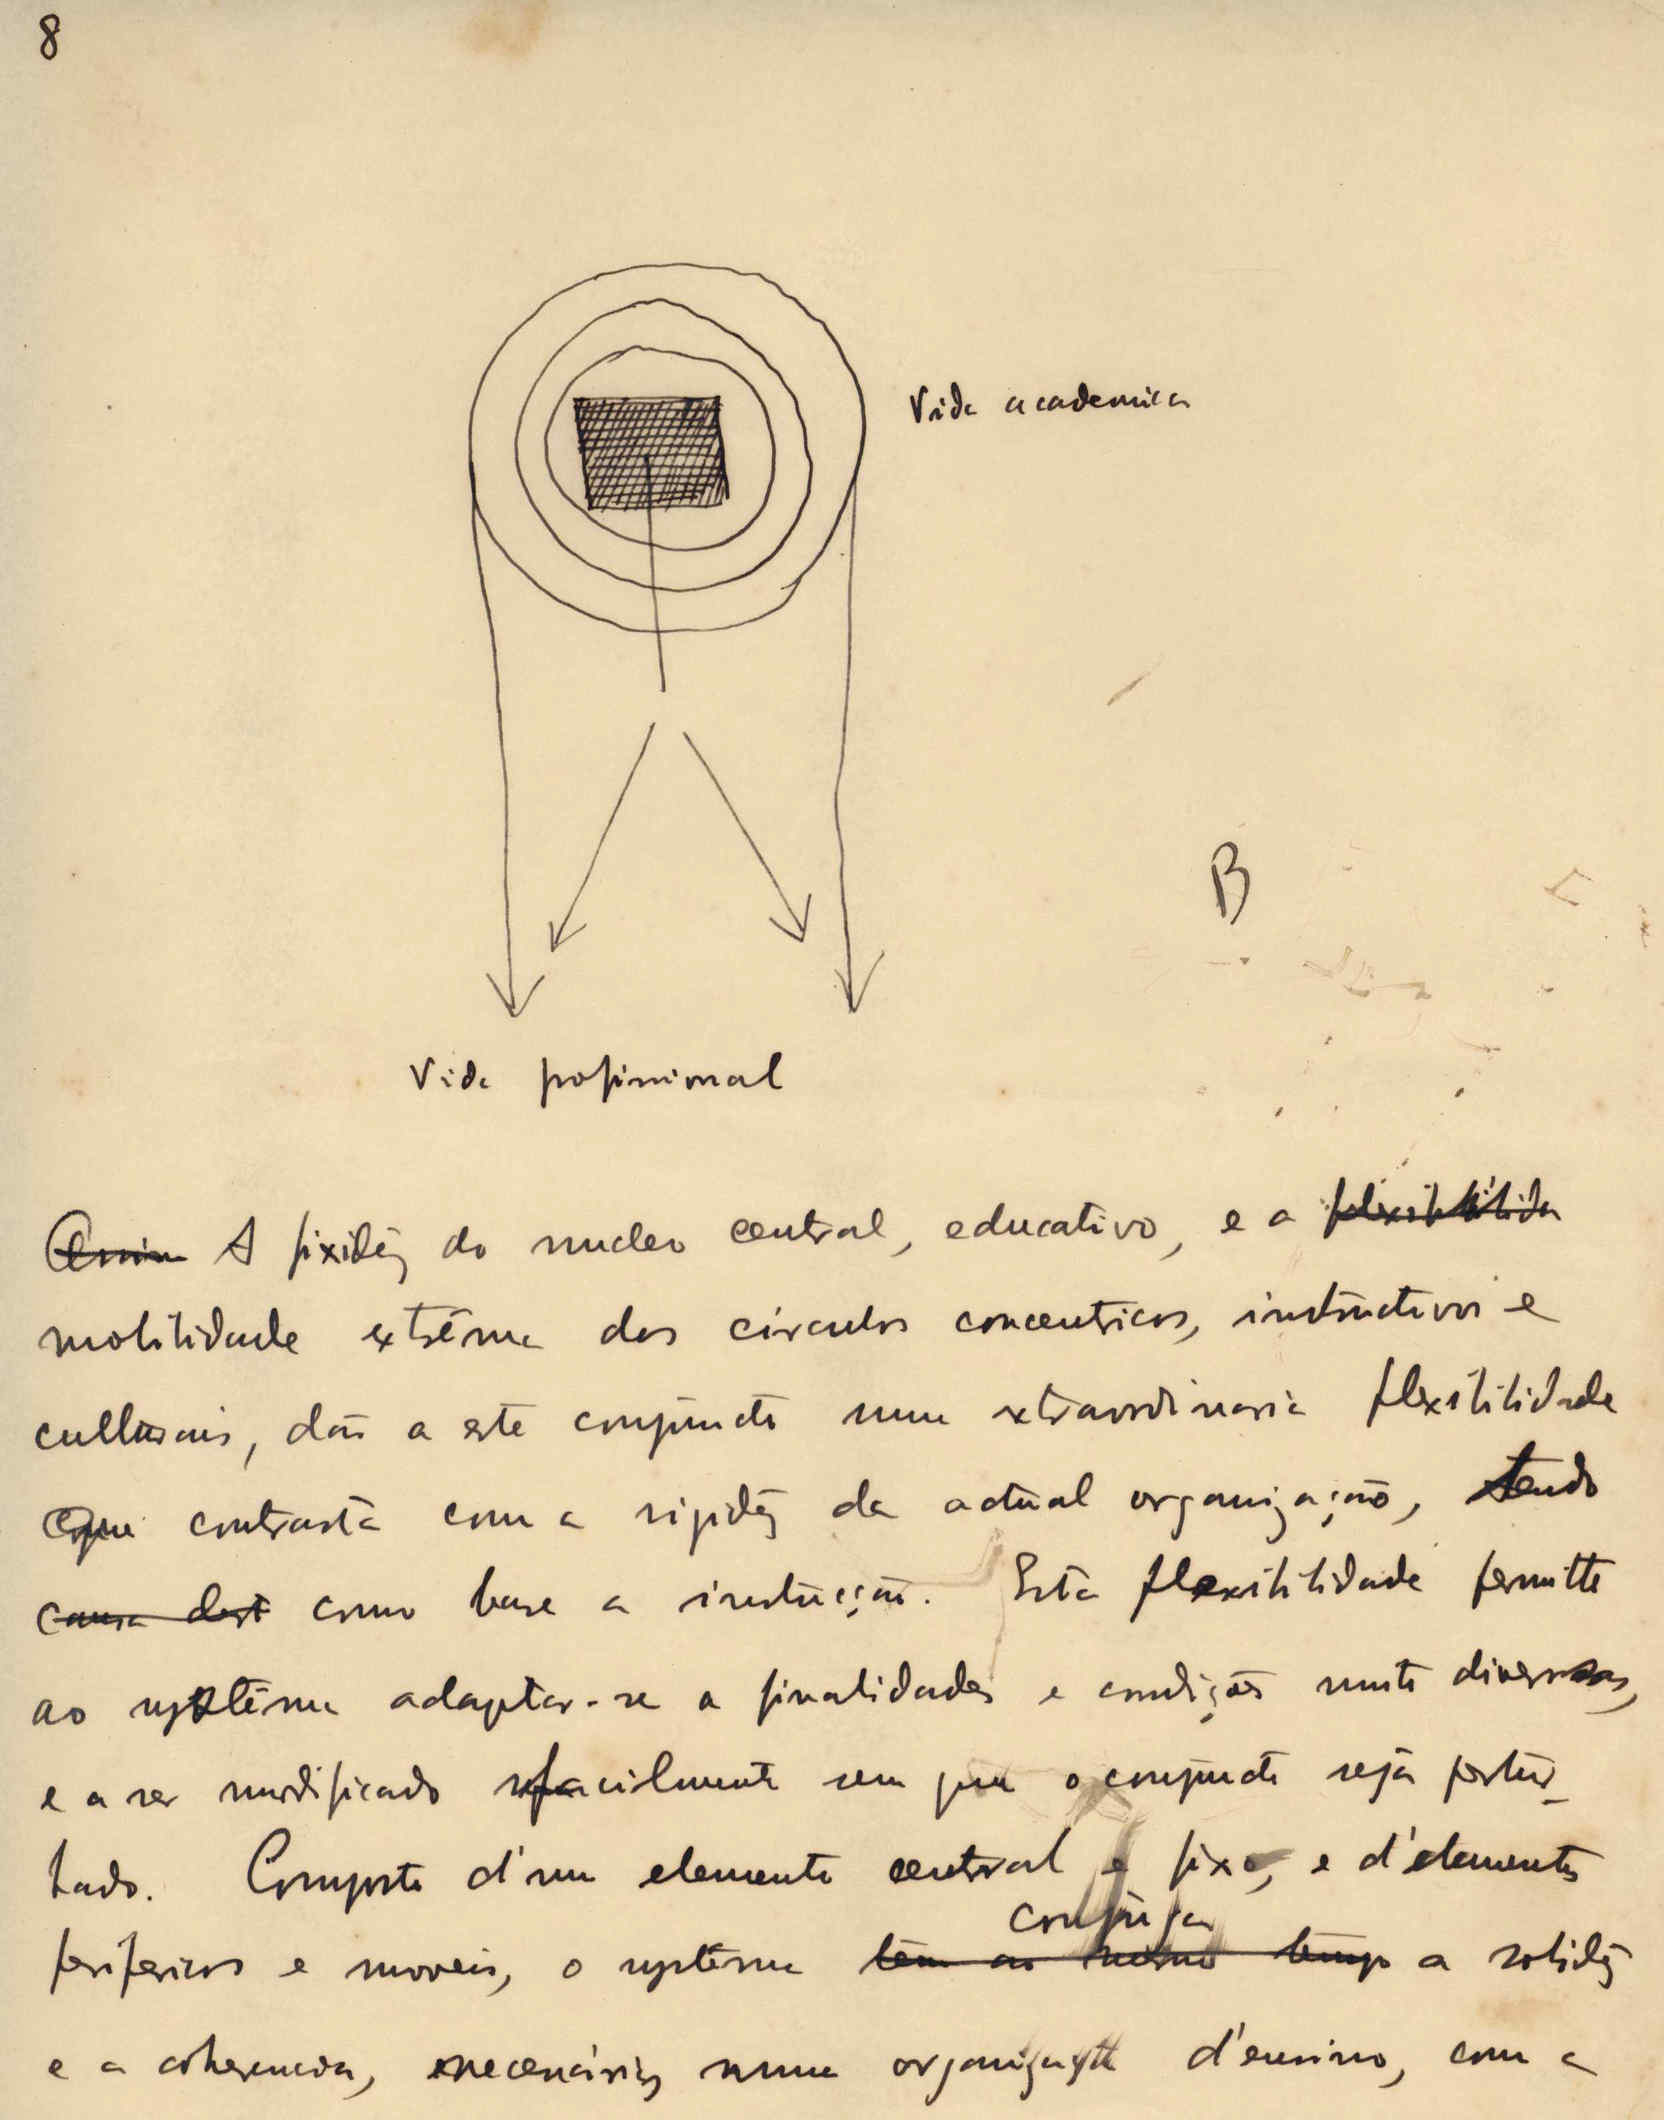 8
Vida academica
B
Vida profissional
Assim A fixidêz do nucleo central, educativo, e a flexibilida
mobilidade extrêma dos circulos concentricos, instructivos e
culturais, dão a este conjuncto uma extraordinaria flexibilidade
que contrasta com a rigidêz da actual organização, tendo
causa dest como base a instrucção. Esta flexibilidade permitte
ao systêma adaptar-se a finalidades e condições muito diversas,
e a ser modificado facilmente sem que o conjuncto seja pertur-
bado. Composto d'um elemento central e fixo, e d'elementos
perifericos e moveis, o systêma têm ao mesmo tempo a solidêz
conjuga
e a coherencia, necessárias numa organização d'ensino, com a